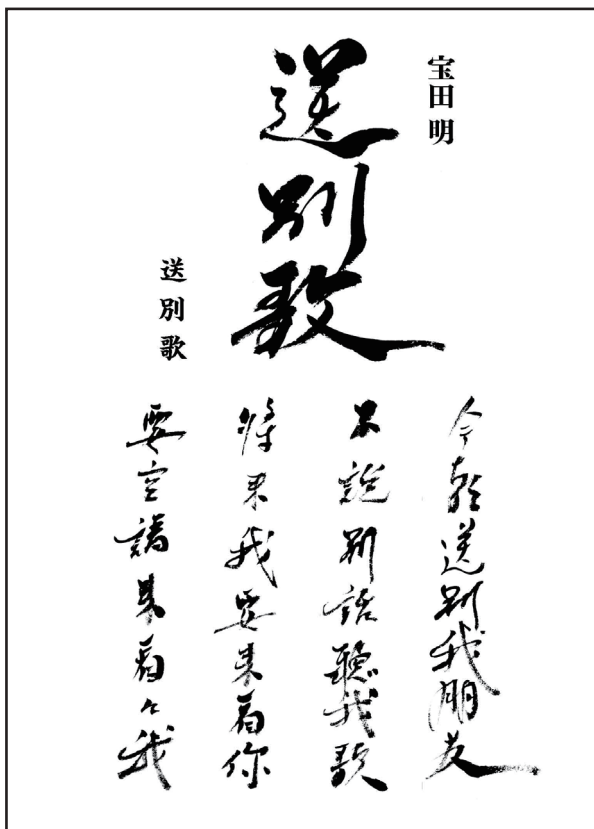 宝田明
送別歌
送別歌
今朝送別我朋友
不説別話聽我歌
将来我要来看你
要空請来看々我